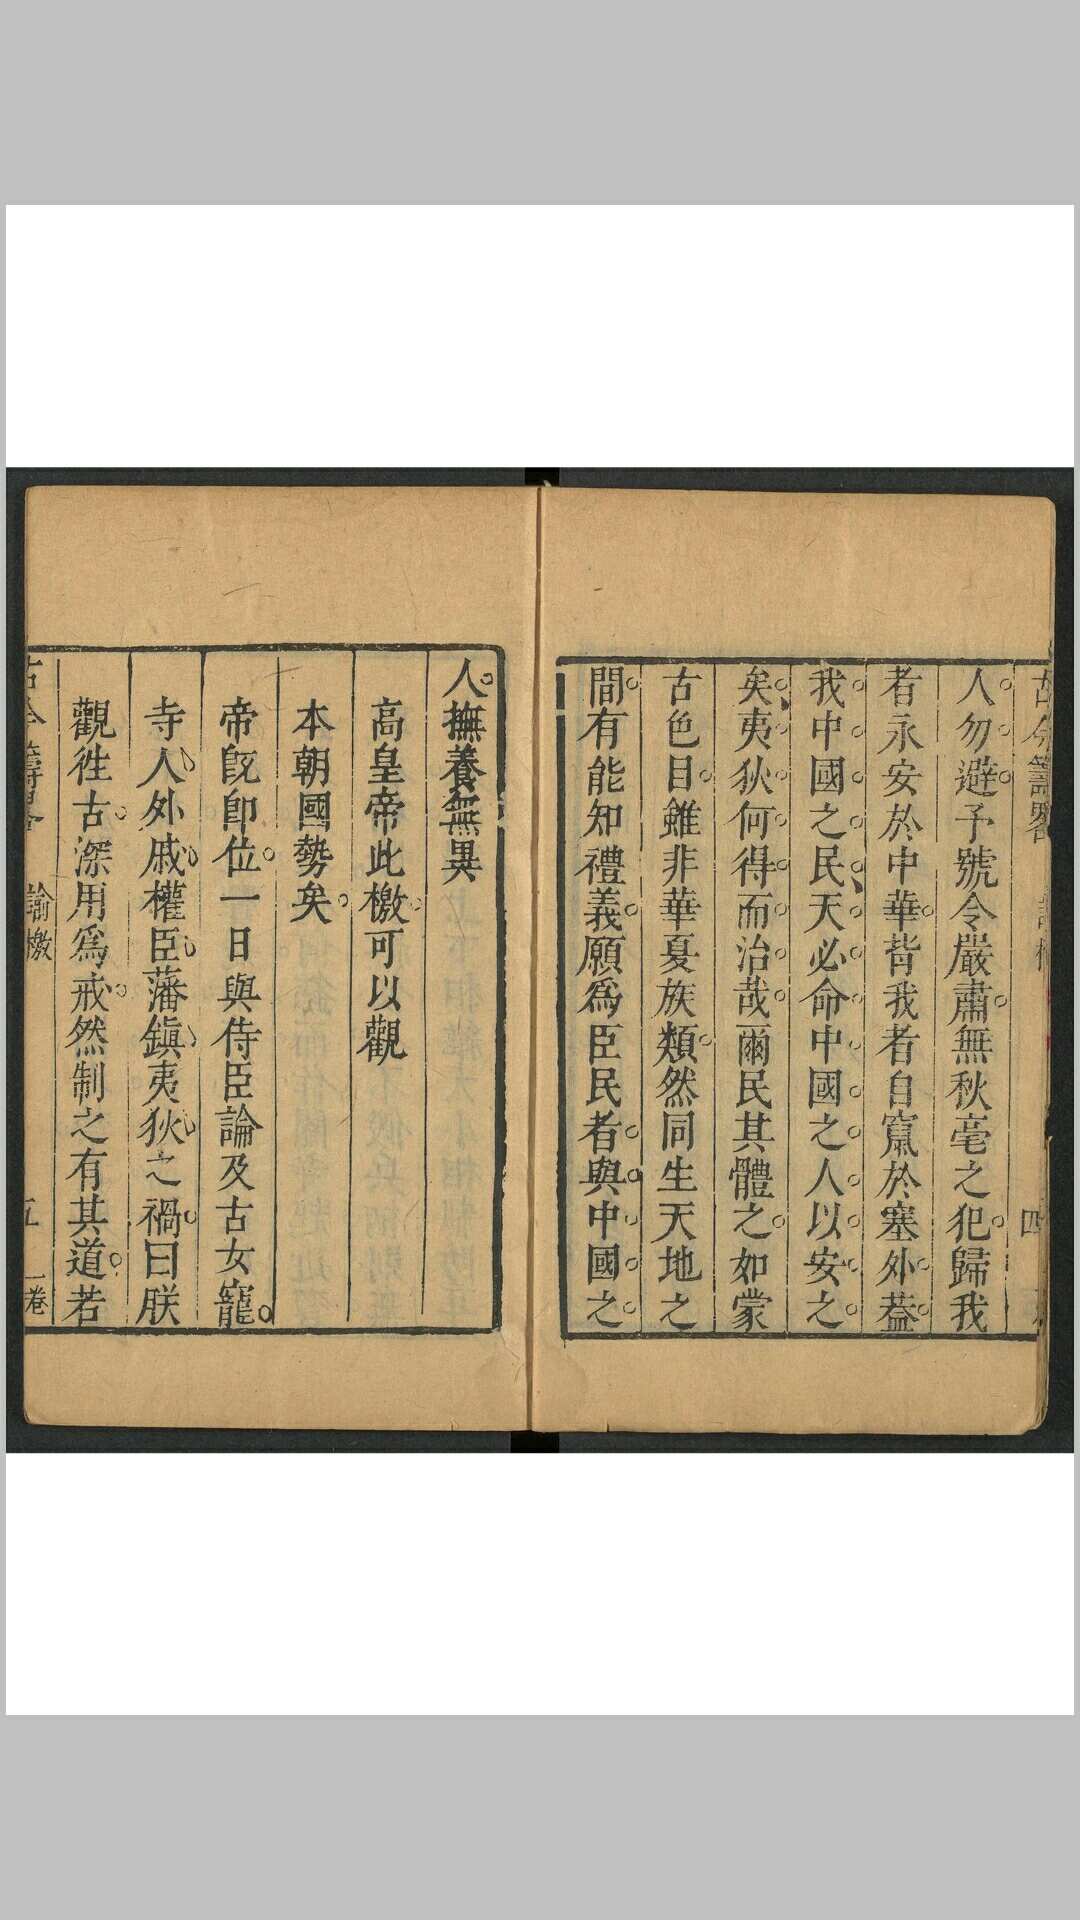 古今籌畧
四
人勿避予號令嚴肅無秋毫之犯歸我
者永安於中華背我者自竄於塞外葢
我中國之民天必命中國之人以安之
矣夷狄何得而治哉爾民其體之如蒙
古色目雖非華夏族類然同生天地之
間有能知禮義願爲臣民者與中國之
人撫養無異
高皇帝此檄可以觀
本朝國勢矣
帝旣卽位一日與侍臣論及古女寵
寺人外戚權臣藩鎮夷狄之禍曰朕
觀徃古深用爲戒然制之有其道若
古今籌畧 諭檄 五 一卷